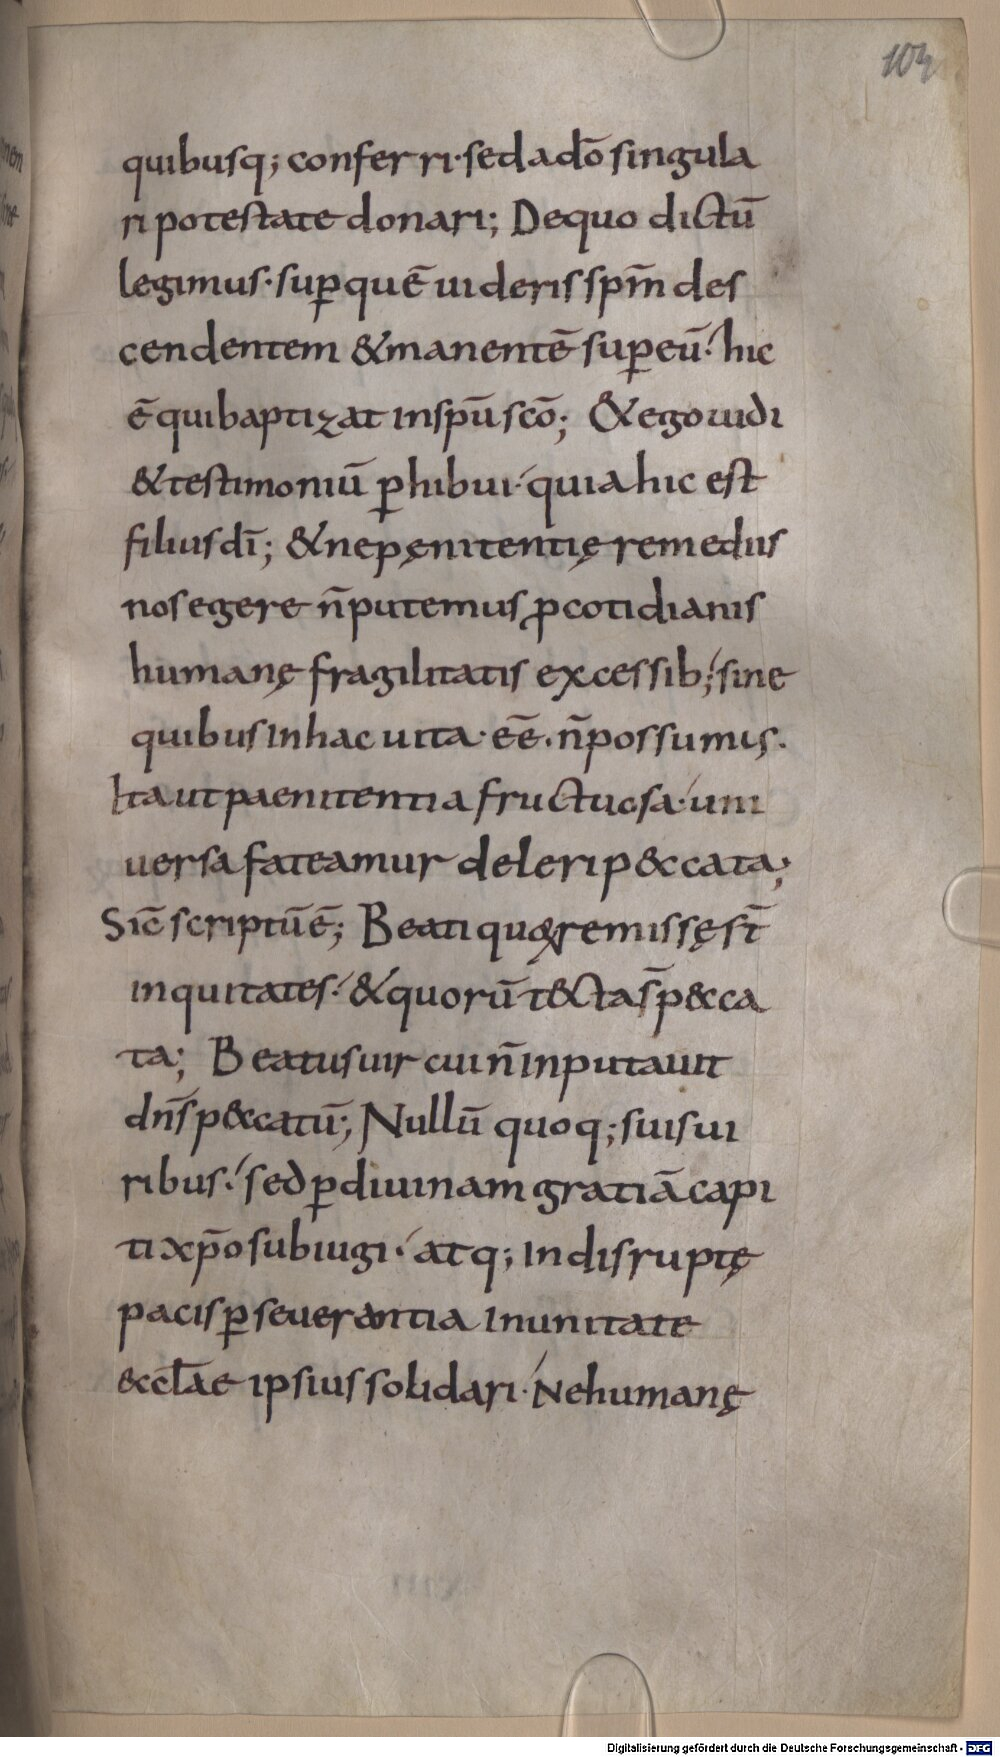 104
quibusq; conferri· sed ado singula
ri potestate donari; Dequo dictū
legimus· sup̄ quē uideris sp̄m des
cendentem &manentē sup̄ eū·' hic
ē qui baptizat in sp̄u sc̄o; &ego uidi
&testimoniū p̄hibui·' quia hic est
filius dī; &ne pęnitentię remediis
nos egere n̄ putemus ꝓ cotidianis
humanę fragilitatis excessib;' sine
quibus in hac uita· eē· n̄ possumus·
Ita ut paenitentia fructuosa·' uni
uersa fateamur deleri p&cata;
Sic̄ scriptū ē; Beati quorum remissę st̄
inquitates·' &quorū t&cta s̄ p&ca
ta; Beatus uir cui n̄ inputauit
dn̄s p&catū; Nullū quoq; suis ui
ribus·' sed p̄ diuinam gratiā capi
ti xp̄o subiugi·' atq; in disruptę
pacis p̄seuerantia in unitate
&cl̄ae ipsius solidari·' Ne humanę
Digitalisierung gefördert durch die Deutsche Forschungsgemeinschaft - DFG